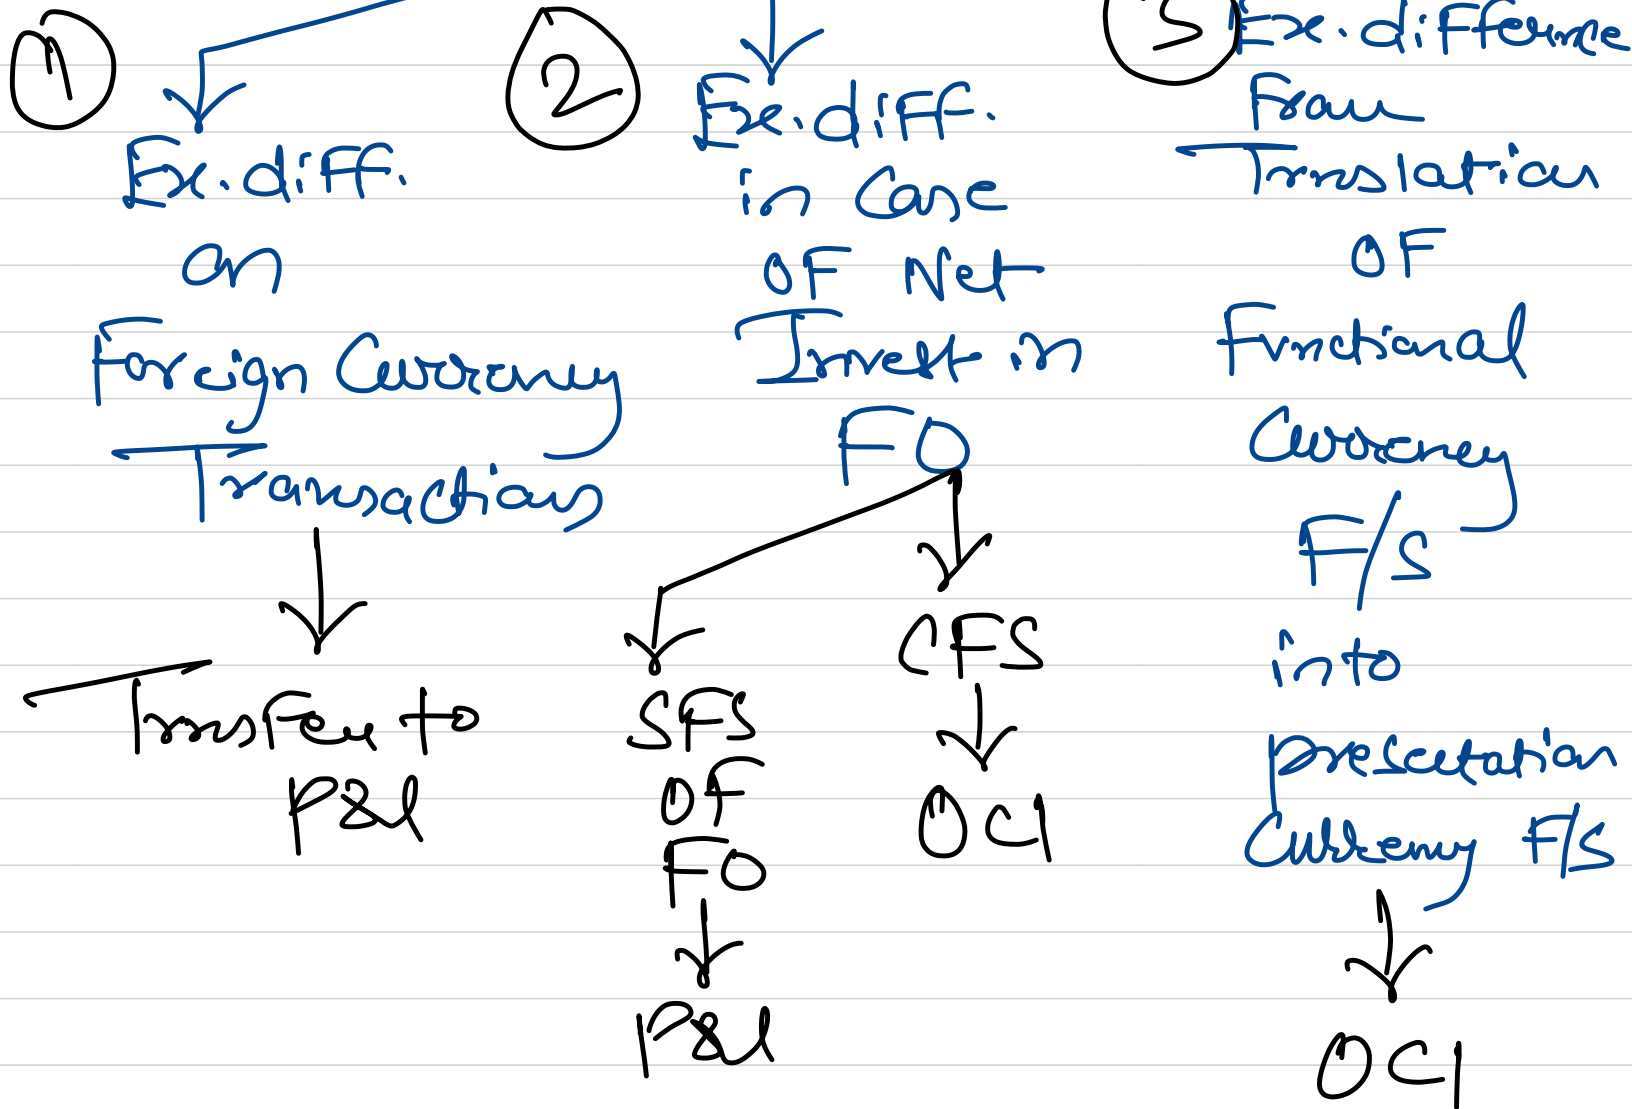 1
Ex. diff.
on
Foreign Currency
Transactions
Transfer to
P&L
2
Ex. diff.
in Case
OF Net
Invest in
FO
SFS
OF
FO
P&L
CFS
OCI
3
Ex. difference
From
Translation
OF
Functional
Currency
F/S
into
presentation
Currency F/S
OCI